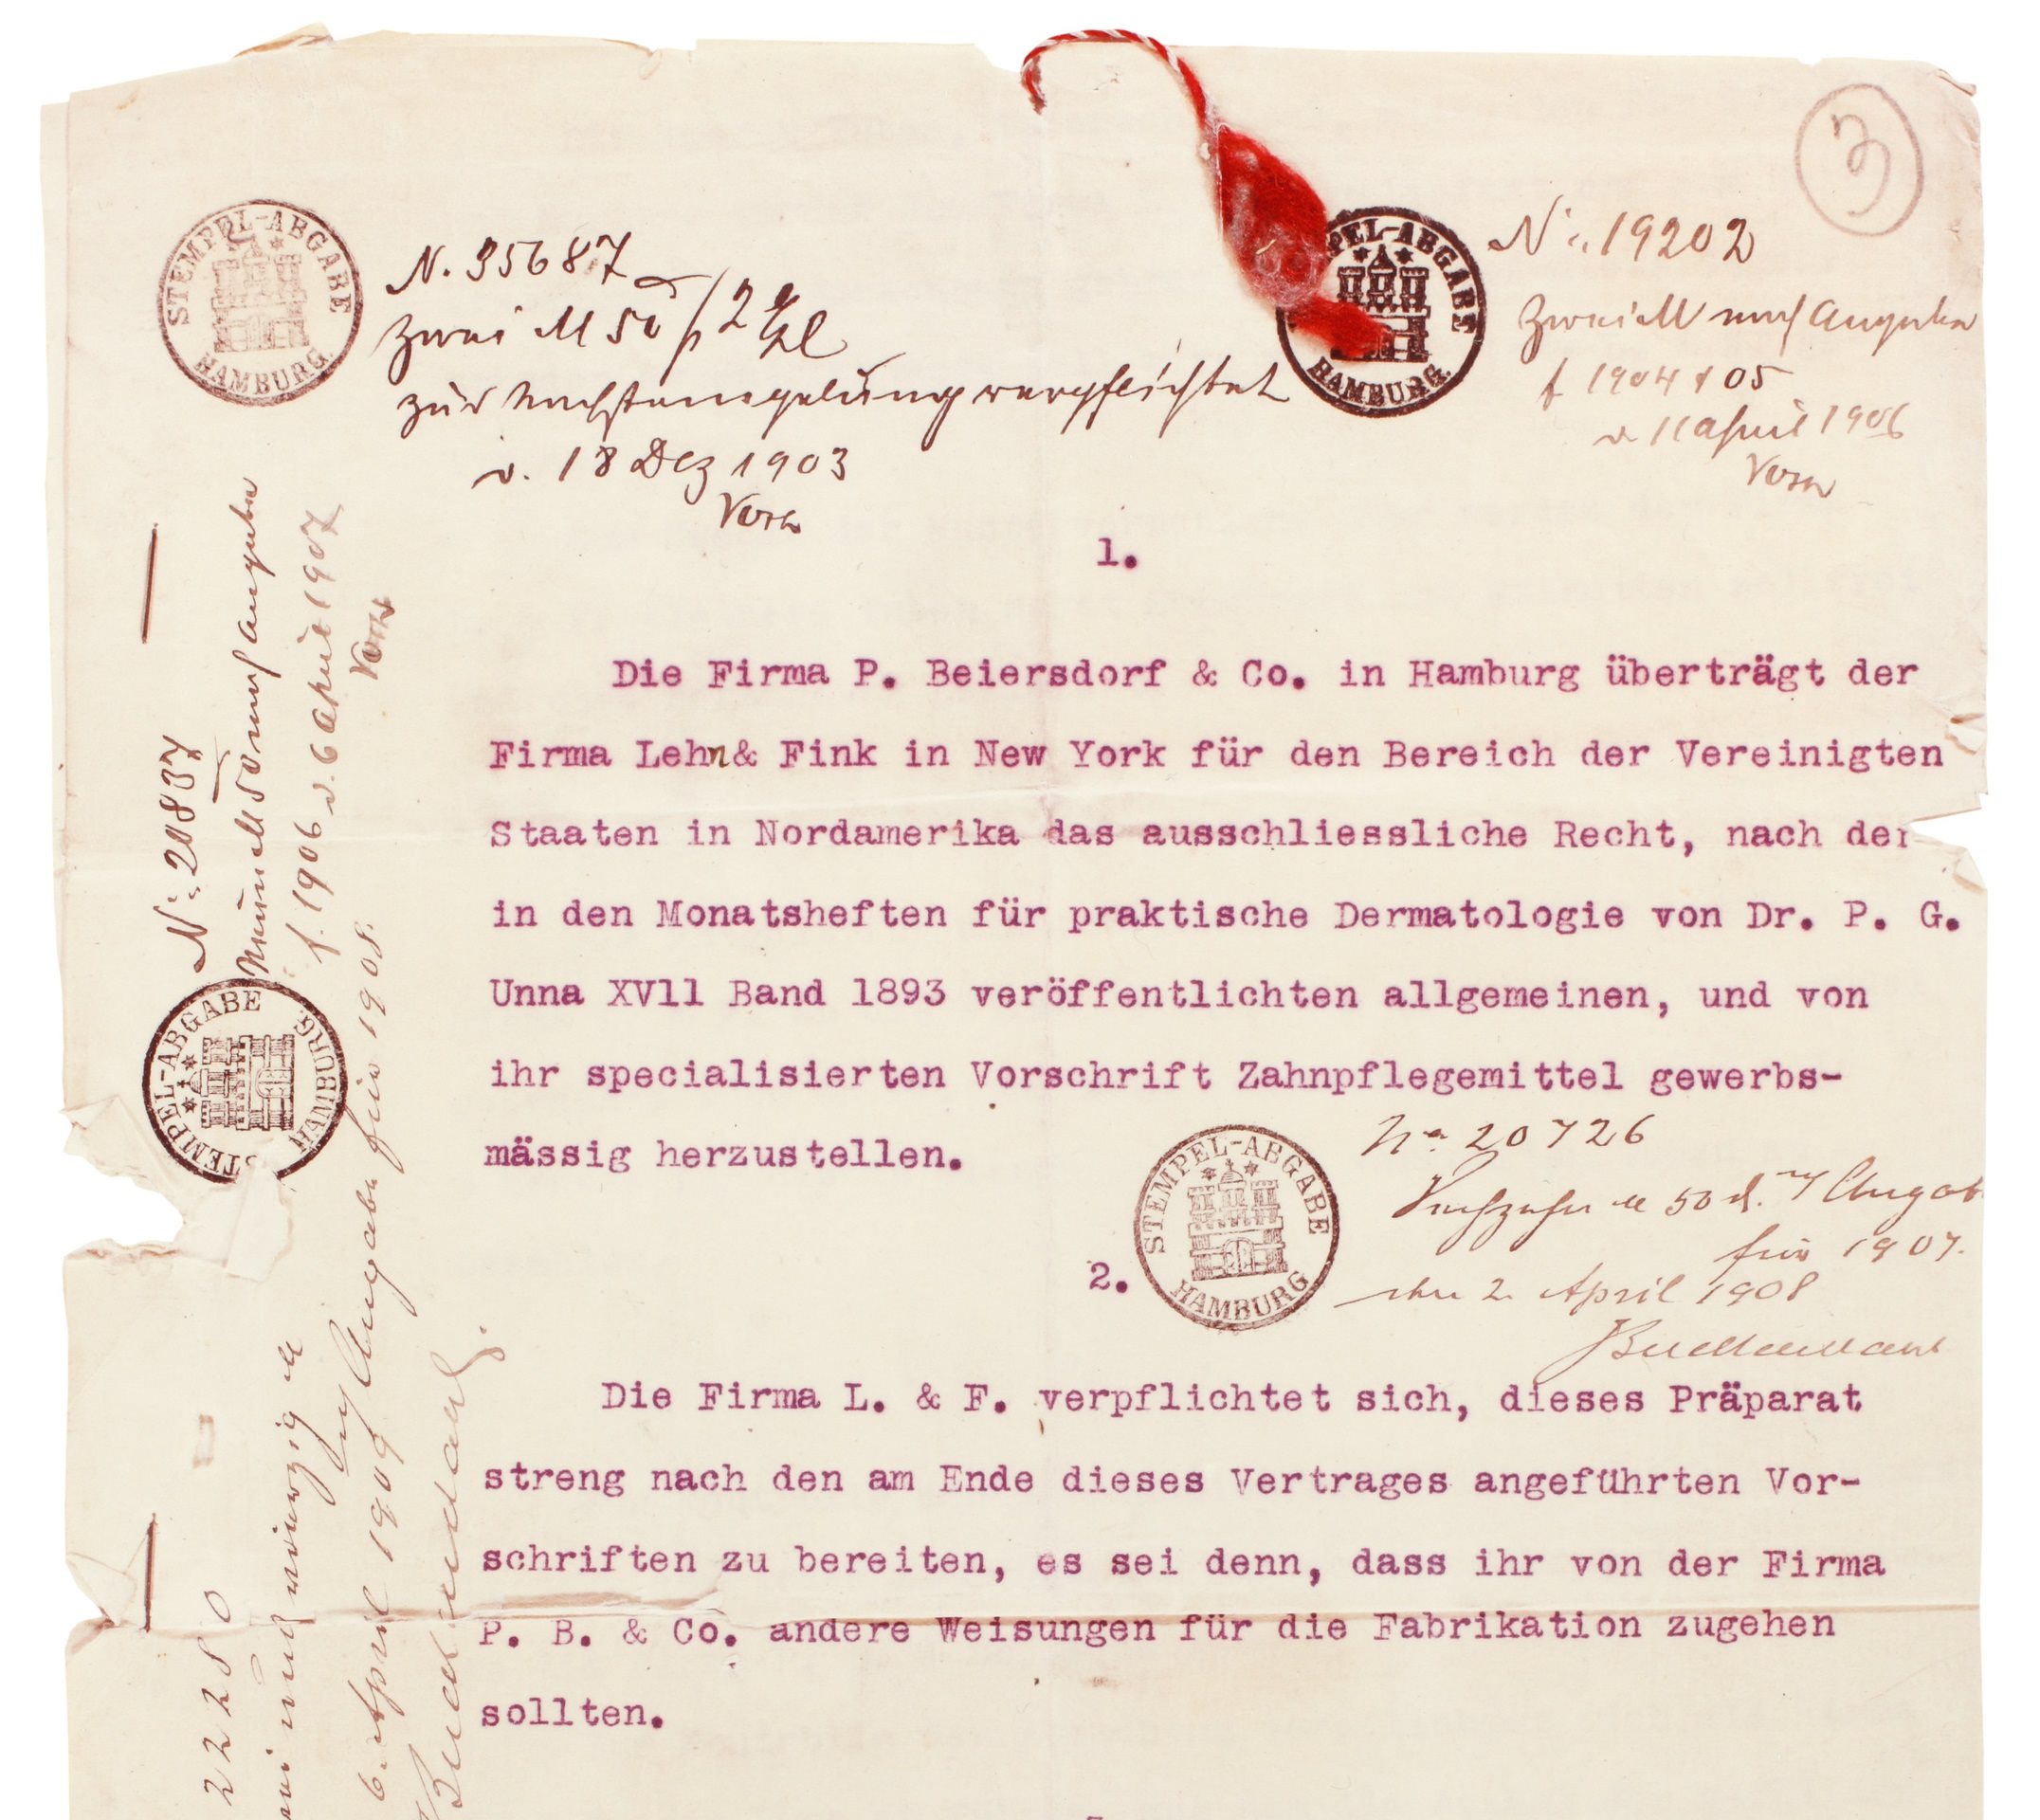 3
STEMPEL-ABGABE
HAMBURG.
N. 35687
zwei M 50 / 2 Expl
zur Nachstempelung verpflichtet
d. 18 Dez 1903
PEL-ABGABE
HAMBURG.
No. 19202
Zwei M nach Angabe
f 1904 & 05
d 11 April 1906
1.
Die Firma P. Beiersdorf & Co. in Hamburg überträgt der
Firma Lehn & Fink in New York für den Bereich der Vereinigten
Staaten in Nordamerika das ausschliessliche Recht, nach der
in den Monatsheften für praktische Dermatologie von Dr. P. G.
Unna XVll Band 1893 veröffentlichten allgemeinen, und von
ihr specialisierten Vorschrift Zahnpflegemittel gewerbs-
mässig herzustellen.
STEMPEL-ABGABE
HAMBURG
No. 20726
50 d. Angabe
für 1907.
den 2. April 1908
2.
Die Firma L. & F. verpflichtet sich, dieses Präparat
streng nach den am Ende dieses Vertrages angeführten Vor-
schriften zu bereiten, es sei denn, dass ihr von der Firma
P. B. & Co. andere Weisungen für die Fabrikation zugehen
sollten.
No. 20837
nach Angabe
f. 1906 d. 6 April 1907
STEMPEL-ABGABE
HAMBURG.
22280
vierzig
Angabe für 1908.
6. April 1909